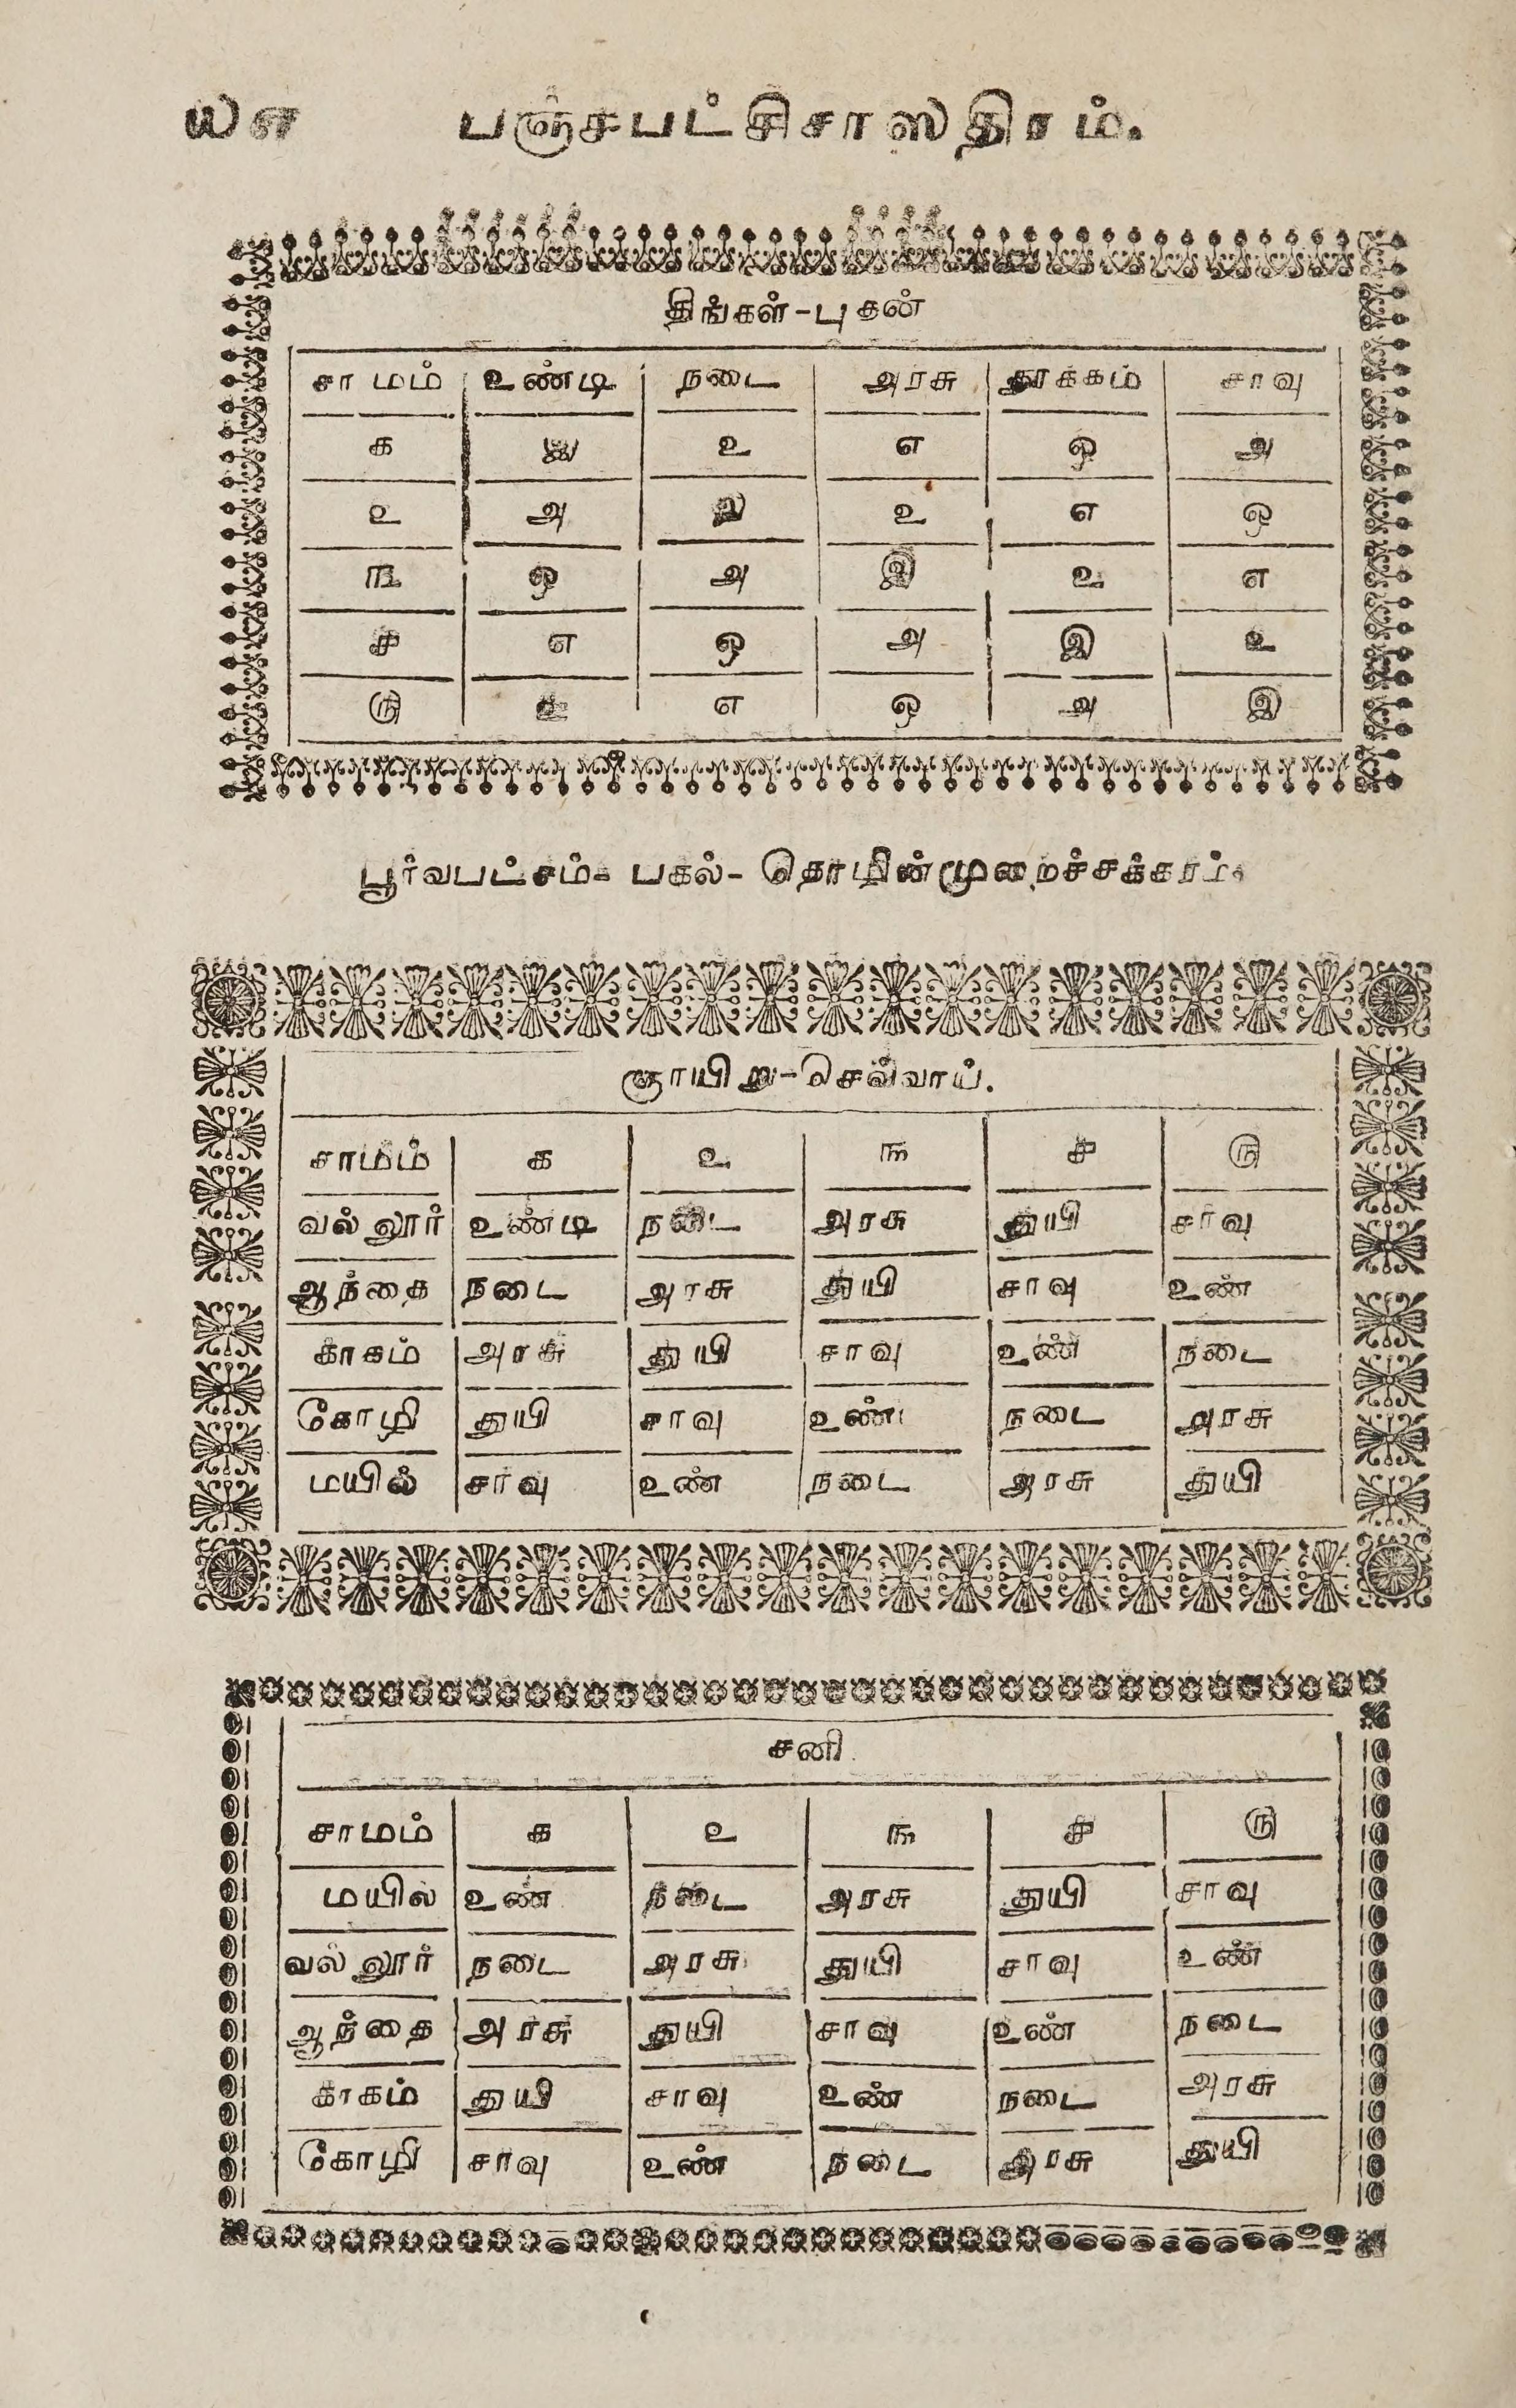 ௰எ பஞ்சபட்சிசாஸ்திரம்.
திங்கள்-புதன்
சாமம் உண்டி நடை அரசு தூக்கம் சாவு
௧ இ உ எ ஒ அ
௨ அ இ உ எ ஒ
௩ ஒ அ இ உ எ
௪ எ ஒ அ இ உ
௫ உ எ ஒ அ இ
பூர்வபட்சம்- பகல்- தொழின்முறைச்சக்கரம்.
ஞாயிறு-செவ்வாய்.
சாமம் ௧ ௨ ௩ ௪ ௫
வல்லூர் உண்டி நடை அரசு துயி சாவு
ஆந்தை நடை அரசு துயி சாவு உண்
காகம் அரசு துயி சாவு உண் நடை
கோழி துயி சாவு உண் நடை அரசு
மயில் சாவு உண் நடை அரசு துயி
சனி
சாமம் ௧ ௨ ௩ ௪ ௫
மயில் உண் நடை அரசு துயி சாவு
வல்லூர் நடை அரசு துயி சாவு உண்
ஆந்தை அரசு துயி சாவு உண் நடை
காகம் துயி சாவு உண் நடை அரசு
கோழி சாவு உண் நடை அரசு துயி